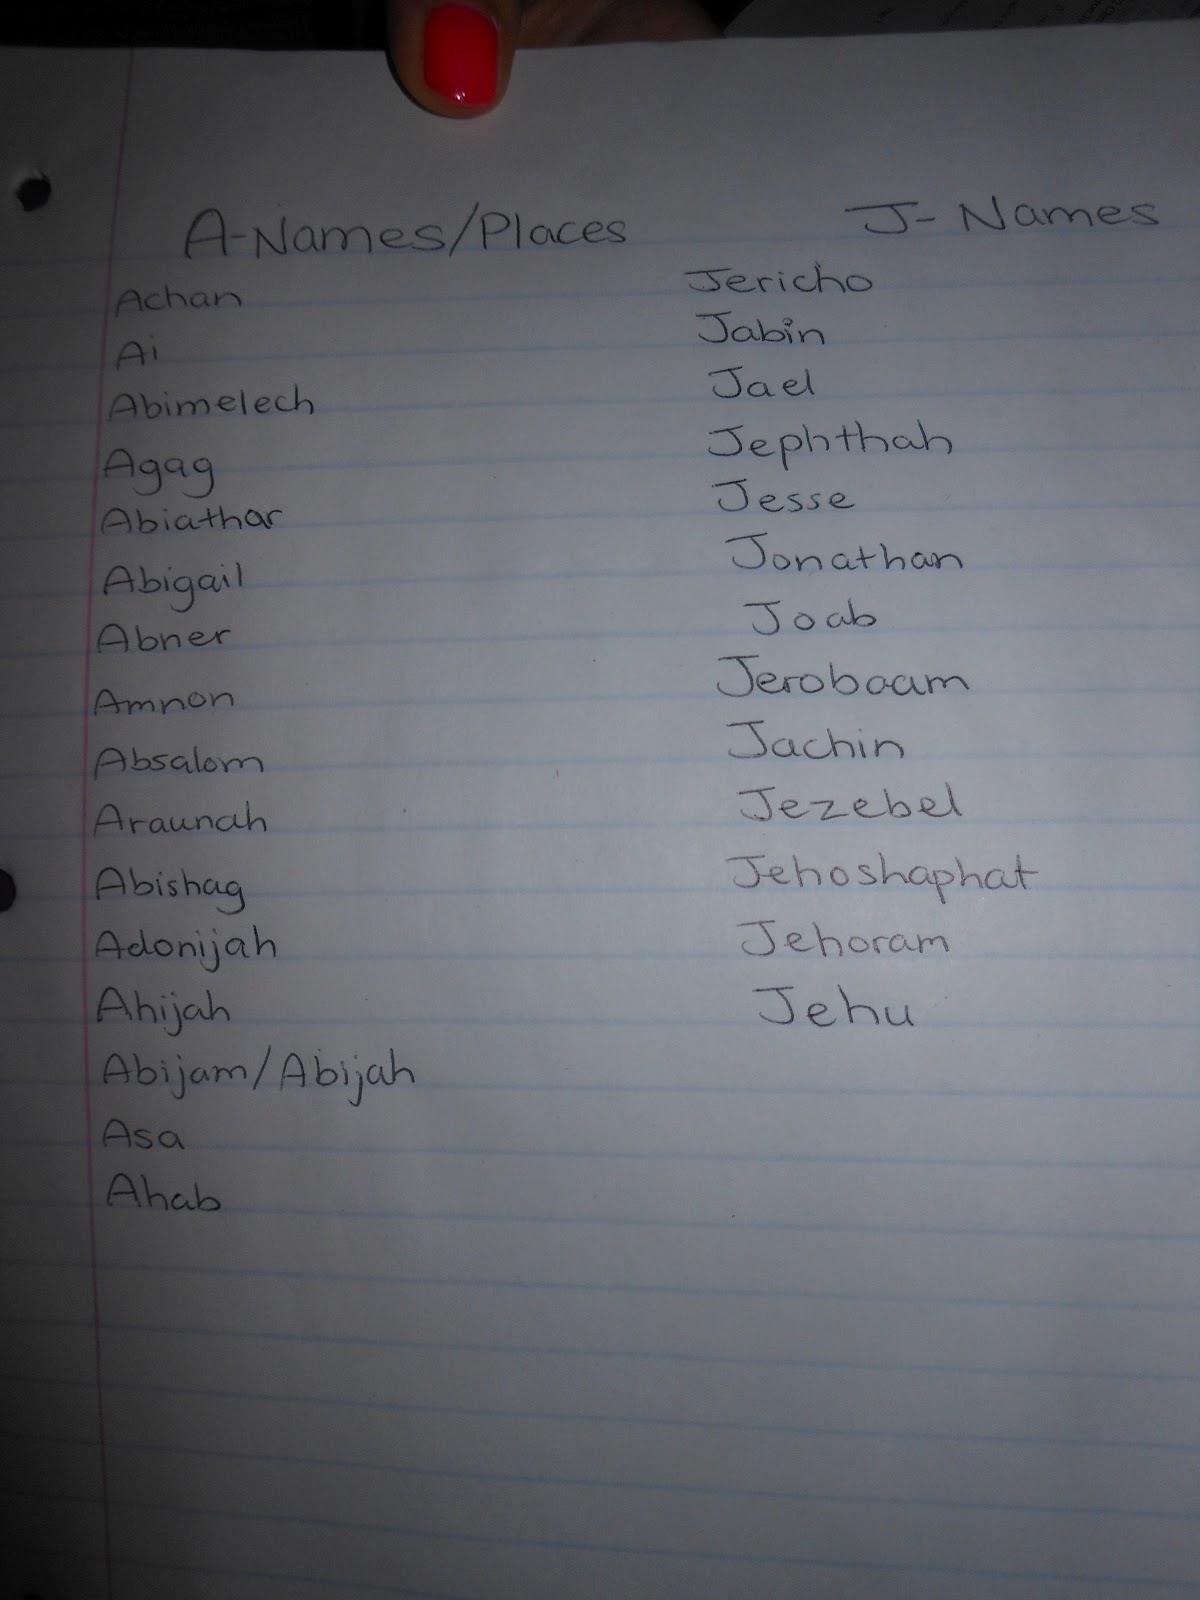 A-Names/Places
Achan
Ai
Abimelech
Agag
Abiathar
Abigail
Abner
Amnon
Absalom
Araunah
Abishag
Adonijah
Ahijah
Abijam/Abijah
Asa
Ahab
J- Names
Jericho
Jabin
Jael
Jephthah
Jesse
Jonathan
Joab
Jeroboam
Jachin
Jezebel
Jehoshaphat
Jehoram
Jehu